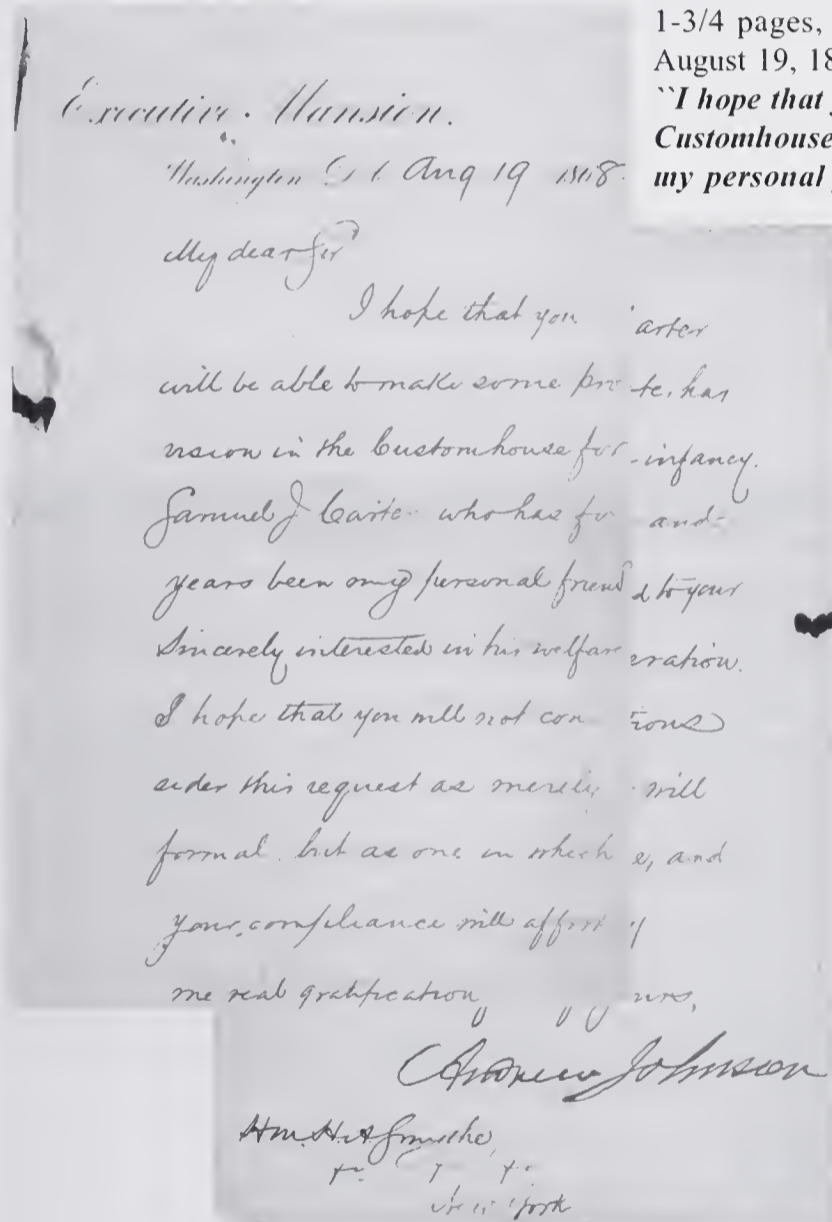 1-3/4 pages,
August 19, 18
``I hope that
Customhouse
my personal
Executive Mansion.
Washington D.C. Aug 19 1868.
My dear Sir
I hope that you
will be able to make some pro
vision in the Customhouse for
Samuel J Carter who has for
years been my personal friend
Sincerely interested in his welfare
I hope that you will not con
sider this request as merely
formal. but as one in which
your compliance will afford
me real gratification
arter
te, has
infancy.
and
d to your
eration.
tions
will
e, and
y
urs,
Andrew Johnson
Hon. H. A. Smythe,
New York